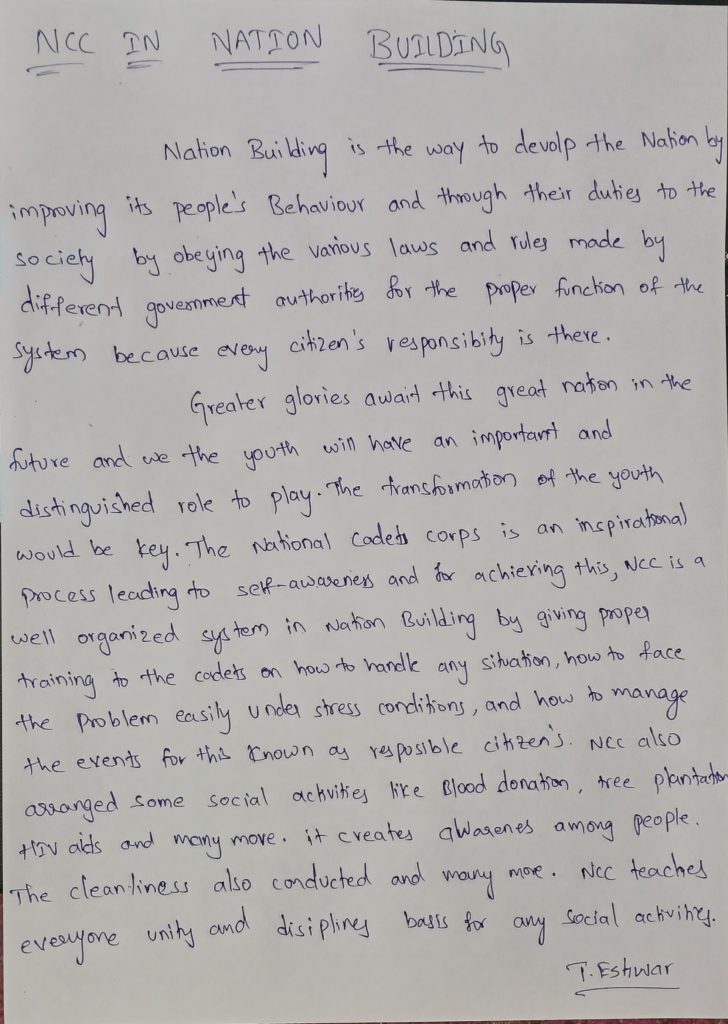 NCC IN NATION BUILDING
Nation Building is the way to devolp the Nation by
improving its people's Behaviour and through their duties to the
society by obeying the various laws and rules made by
different government authorities for the proper function of the
system because every citizen's responsibity is there.
Greater glories await this great nation in the
future and we the youth will have an important and
distinguished role to play. The transformation of the youth
would be key. The National Cadets corps is an inspirational
process leading to self-awareness and for achieving this, NCC is a
well organized system in Nation Building by giving proper
training to the cadets on how to handle any situation, how to face
the problem easily under stress conditions, and how to manage
the events for this known as resposible citizen's. NCC also
arranged some social activities like Blood donation, tree plantation
HIV aids and many more. it creates awarenes among people.
The clean-liness also conducted and many more. NCC teaches
everyone unity and disiplines basis for any social activities.
T. Eshwar